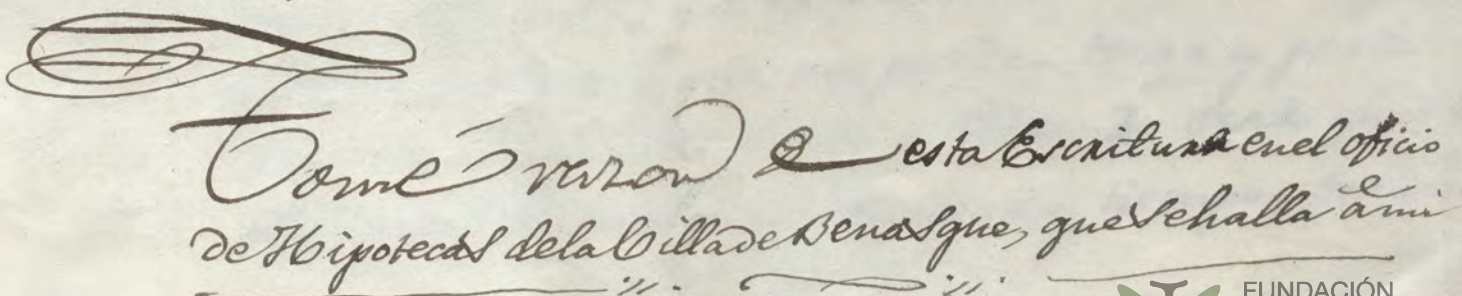 Tomé razon de esta Escritura en el oficio
de Hipotecas dela Villa de Benasque, que se halla â mi
FUNDACIÓN